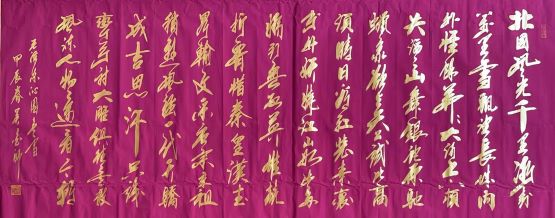 北国风光千里冰封
万里雪飘望长城内
外惟余莽莽大河上下顿
失滔滔山舞银蛇原驰
蜡象欲与天公试比高
须晴日看红装素裹
分外妖娆江山如此多
娇引无数英雄竞
折腰惜秦皇汉武
略输文采唐宗宋祖
稍逊风骚一代天骄
成吉思汗只识
弯弓射大雕俱往矣数
风流人物还看今朝
毛泽东沁园春雪
甲辰春